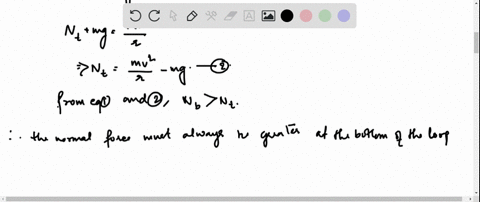 N_t + mg = /r
⇒ N_t = mv²/r - mg. —②
from eq① and ②, N_b > N_t.
∴ the normal force must always be greater at the bottom of the loop